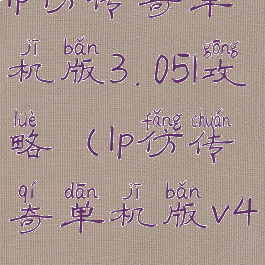 ip仿传奇单
jī bǎn gōng
机版3.051攻
lüè fǎng chuán
略(1p仿传
qí dān jī bǎn
奇单机版v4